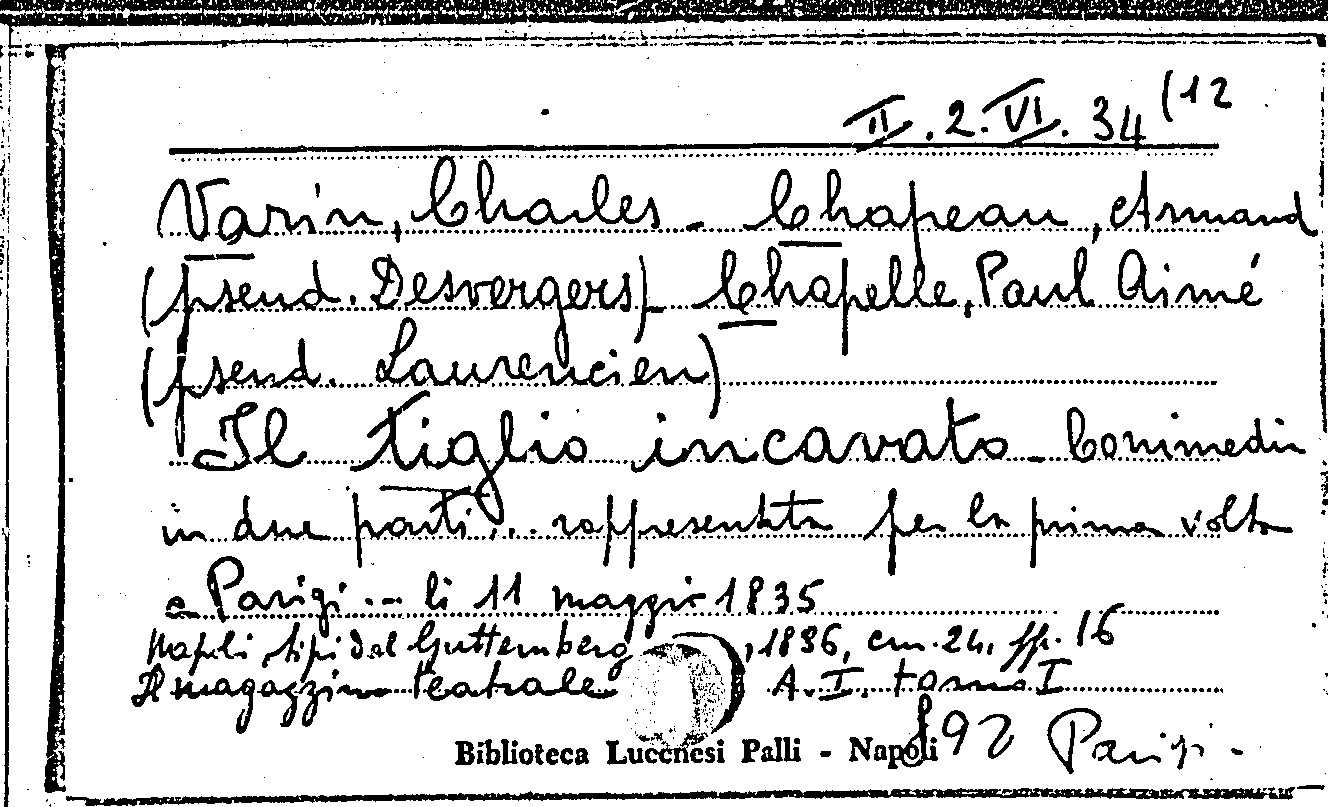 II.2.VI.34(12
Varin, Charles - Chapeau, Armand
(pseud. Desvergers) - Chapelle, Paul Aimé
(pseud. Laurencien)
Il tiglio incavato - Commedia
in due parti... rappresentata per la prima volta
a Parigi ... li 11 maggio 1835
Napoli, tipi dal Guttemberg, 1836, cm. 24, pp. 16
Il magazzino teatrale A.I. tomo I
Biblioteca Lucchesi Palli - Napoli
892 Parigi -